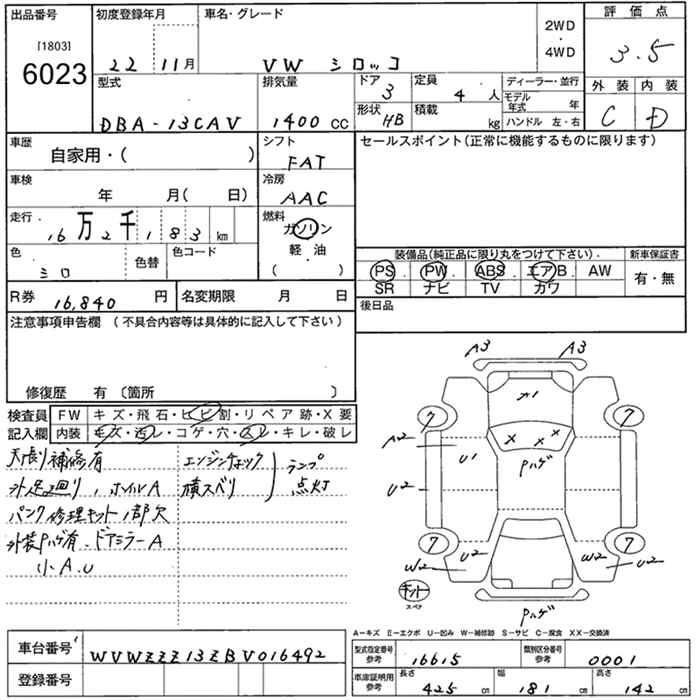 出品番号 初度登録年月 車名・グレード 2WD・4WD 評価点
[1803] 6023 22 11月 VW シロッコ 3.5
型式 排気量 ドア 3 定員 4人 ディーラー・並行 外装 内装
DBA-13CAV 1400 CC 形状 HB 積載 kg モデル年式 年 ハンドル 左・右 C D
車歴 自家用・( ) シフト FAT セールスポイント(正常に機能するものに限ります)
車検 年 月( 日) 冷房 AAC
走行 16万2千183km 燃料 ガソリン 軽・油 ( )
色 シロ 色替 色コード
装備品(純正品に限り丸をつけて下さい). 新車保証書
PS PW ABS エアB AW 有・無
SR ナビ TV カワ
R券 16,840 円 名変期限 月 日 後日品
注意事項申告欄 (不具合内容等は具体的に記入して下さい)
修復歴 有 〔箇所 〕
検査員 FW キズ・飛石・ヒビ割・リペア跡・X要
記入欄 内装 キズ・汚レ・コゲ・穴・スレ・キレ・破レ
天張り補修有 エンジンチェック ランプ
外足廻り,ホイルA 横スベリ 点灯
パンク修理キット1部欠
外装Pハゲ有.ドアミラーA
小A.U
A3 A3
A1
7 7
X X X
A2 U1 Pハゲ
U2
7 7
W2 U2 W2 U2
キット
スペア
Pハゲ
A-キズ E-エクボ U-凹み W-補修跡 S-サビ C-腐食 XX-交換済
車台番号 WVWZZZ13ZBV016492
登録番号
型式指定番号 参考 16615 類別区分番号 参考 0001
車庫証明用 参考 長さ 425 cm 幅 181 cm 高さ 142 cm